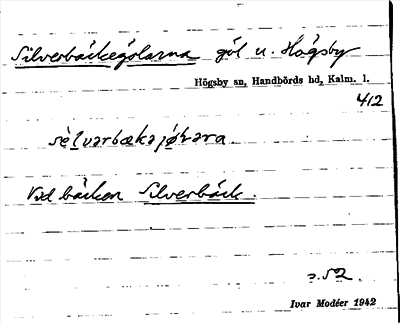 Silverbäckegölarna göl u. Högsby
Högsby sn, Handbörds hd, Kalm. l.
412
Vid bäcken Silverbäck.
s. 52.
Ivar Modéer 1942